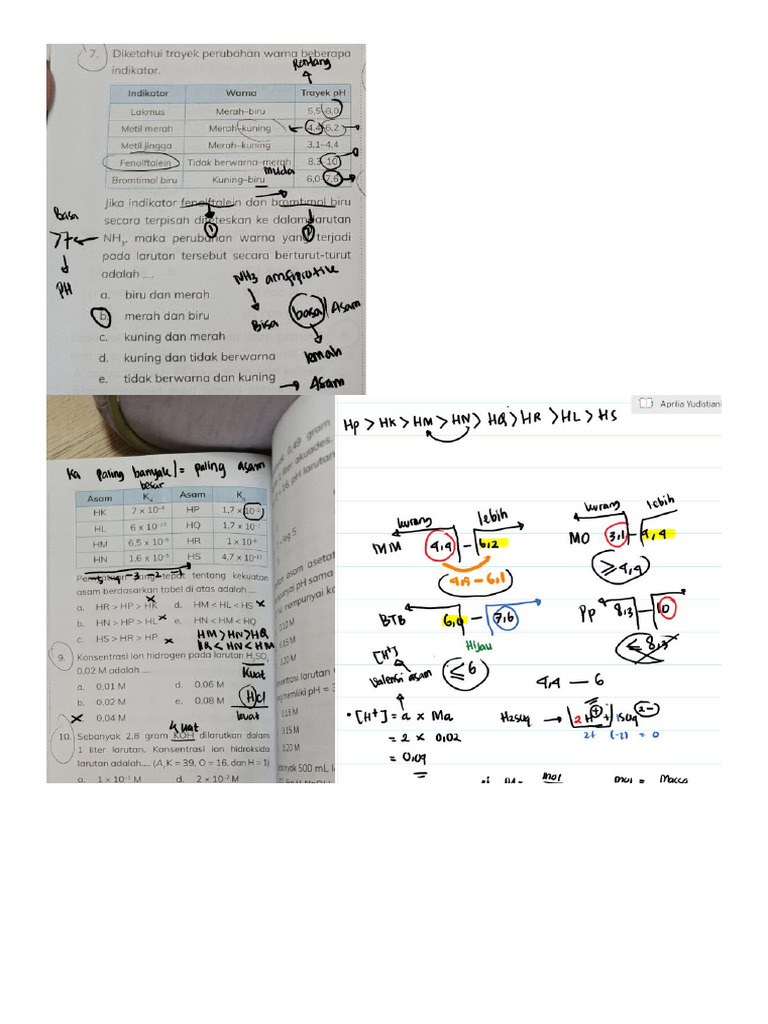 7. Diketahui trayek perubahan warna beberapa
indikator.
Rentang
Indikator Warna Trayek pH
Lakmus Merah–biru 5,5–8,0
Metil merah Merah–kuning 4,4–6,2
Metil jingga Merah–kuning 3,1–4,4
Fenolftalein Tidak berwarna–merah 8,3–10
muda
Bromtimol biru Kuning–biru 6,0–7,6
Jika indikator fenolftalein dan bromtimol biru
secara terpisah diteteskan ke dalam larutan
NH3, maka perubahan warna yang terjadi
pada larutan tersebut secara berturut-turut
adalah ....
1
2
Basa
>7
PH
NH3 amfiprotik
Bisa basa / Asam
lemah
a. biru dan merah
b. merah dan biru
c. kuning dan merah
d. kuning dan tidak berwarna
e. tidak berwarna dan kuning → Asam
Ka paling banyak/ = paling asam
besar
Asam Ka Asam Ka
HK 7 × 10-4 HP 1,7 × 10-2
HL 6 × 10-10 HQ 1,7 × 10-7
HM 6,5 × 10-5 HR 1 × 10-8
HN 1,6 × 10-5 HS 4,7 × 10-11
-5 -4 -3 -2 -1
Pernyataan yang tepat tentang kekuatan
asam berdasarkan tabel di atas adalah ....
a. HR > HP > HK d. HM < HL < HS
b. HN > HP > HL e. HR < HN < HM
c. HS > HR > HP
HM > HN > HQ
HR < HN < HM
9. Konsentrasi ion hidrogen pada larutan H2SO4
0,02 M adalah ....
kuat
a. 0,01 M d. 0,06 M
b. 0,02 M e. 0,08 M
0,04 M
HCl
kuat
kuat
10. Sebanyak 2,8 gram KOH dilarutkan dalam
1 liter larutan. Konsentrasi ion hidroksida
larutan adalah.... (Ar K = 39, O = 16, dan H = 1)
a. 1 × 10-1 M d. 2 × 10-2 M
0,49 gram
liter akuades,
pH larutan
log 5
asam asetat
pH sama
mempunyai
0,15 M
0,20 M
larutan
pH = 3
0,15 M
0,20 M
500 mL
Aprilia Yudistian
HP > HK > HM > HN > HQ > HR > HL > HS
kurang lebih
MM 4,4 – 6,2
4,4 – 6,1
kurang lebih
MO 3,1 – 4,4
≥ 4,4
BTB 6,0 – 7,6
Hijau
≤ 6
PP 8,3 – 10
≤ 8,3
[H+]
Valensi asam
4,4 — 6
• [H+] = a × Ma
= 2 × 0,02
= 0,04
H2SO4 → 2H+ + 1SO4 2-
2+ (-2) = 0
mol
mol = Massa